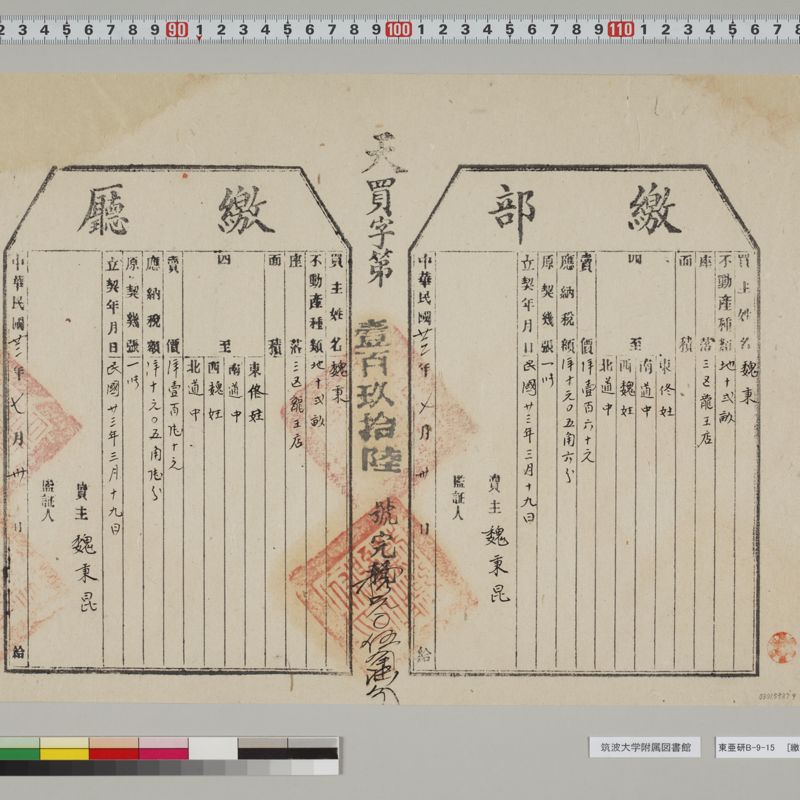 繳部
買主姓名魏東
不動產種類地十弍畝
座落三區龍王店
面積
四至
東佟姓
南道中
西魏姓
北道中
賣價洋壹百六十元
應納稅額洋十元〇五角六分
原契幾張一
立契年月日民國廿三年三月十九日
賣主魏東昆
監証人
中華民國廿三年七月卅日
給
天買字第壹百玖拾陸號完
〇伍角
繳廳
買主姓名魏東
不動產種類地十弍畝
座落三區龍王店
面積
四至
東佟姓
南道中
西魏姓
北道中
賣價洋壹百陸十元
應納稅額洋十元〇五角陸分
原契幾張一
立契年月日民國廿三年三月十九日
賣主魏東昆
監証人
中華民國廿三年七月卅日
給
筑波大学附属図書館
東亜研B-9-15